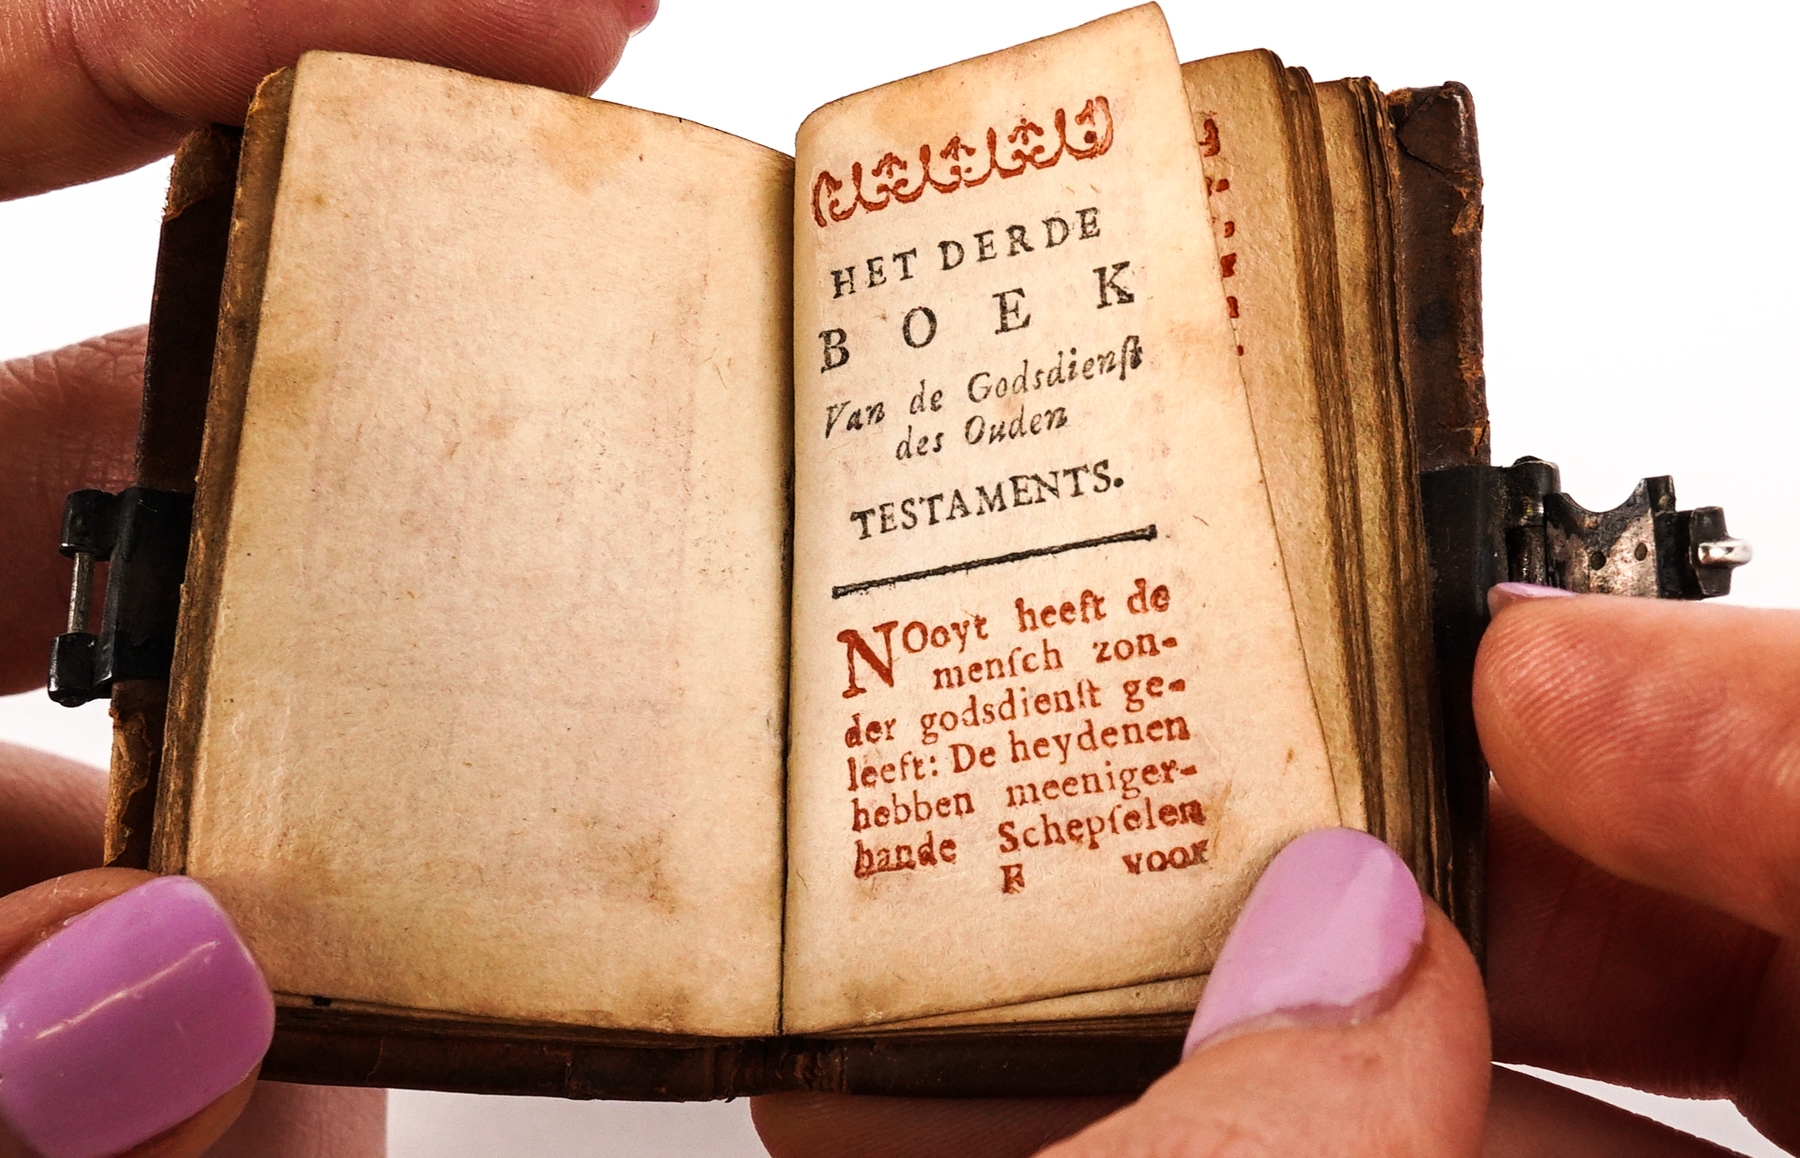 HET DERDE
BOEK
Van de Godsdienſt
des Ouden
TESTAMENTS.
NOoyt heeft de
menſch zon-
der godsdienſt ge-
leeft: De heydenen
hebben meeniger-
hande Schepſelen
F voor